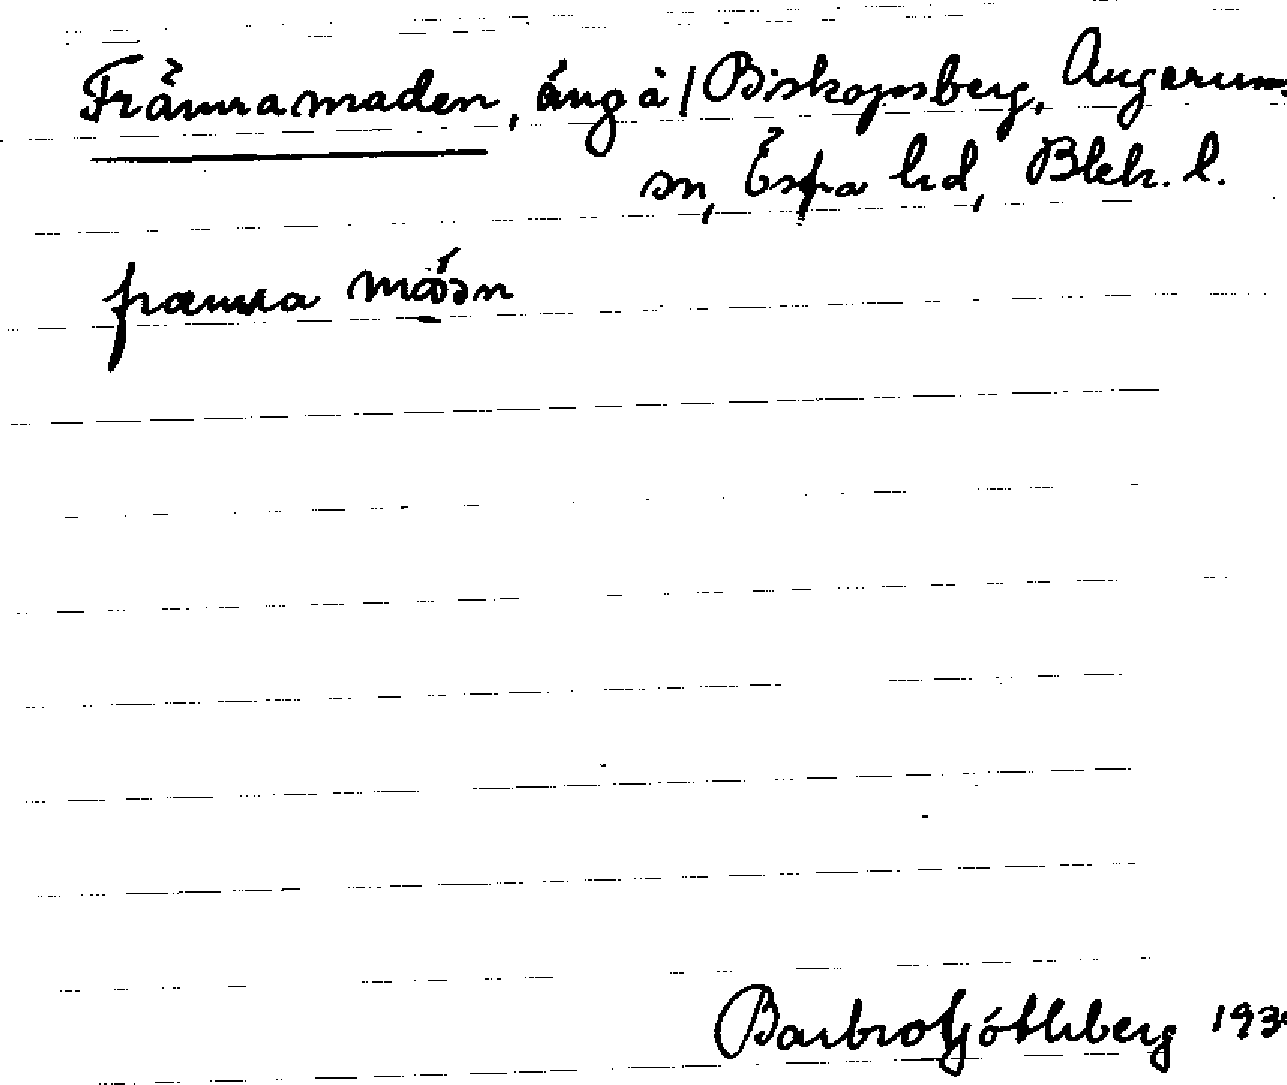 Främramaden, äng å / Biskopsberg, Augerums
sn, Östra hd, Blek. l.
framra
Barbro Götlberg 193